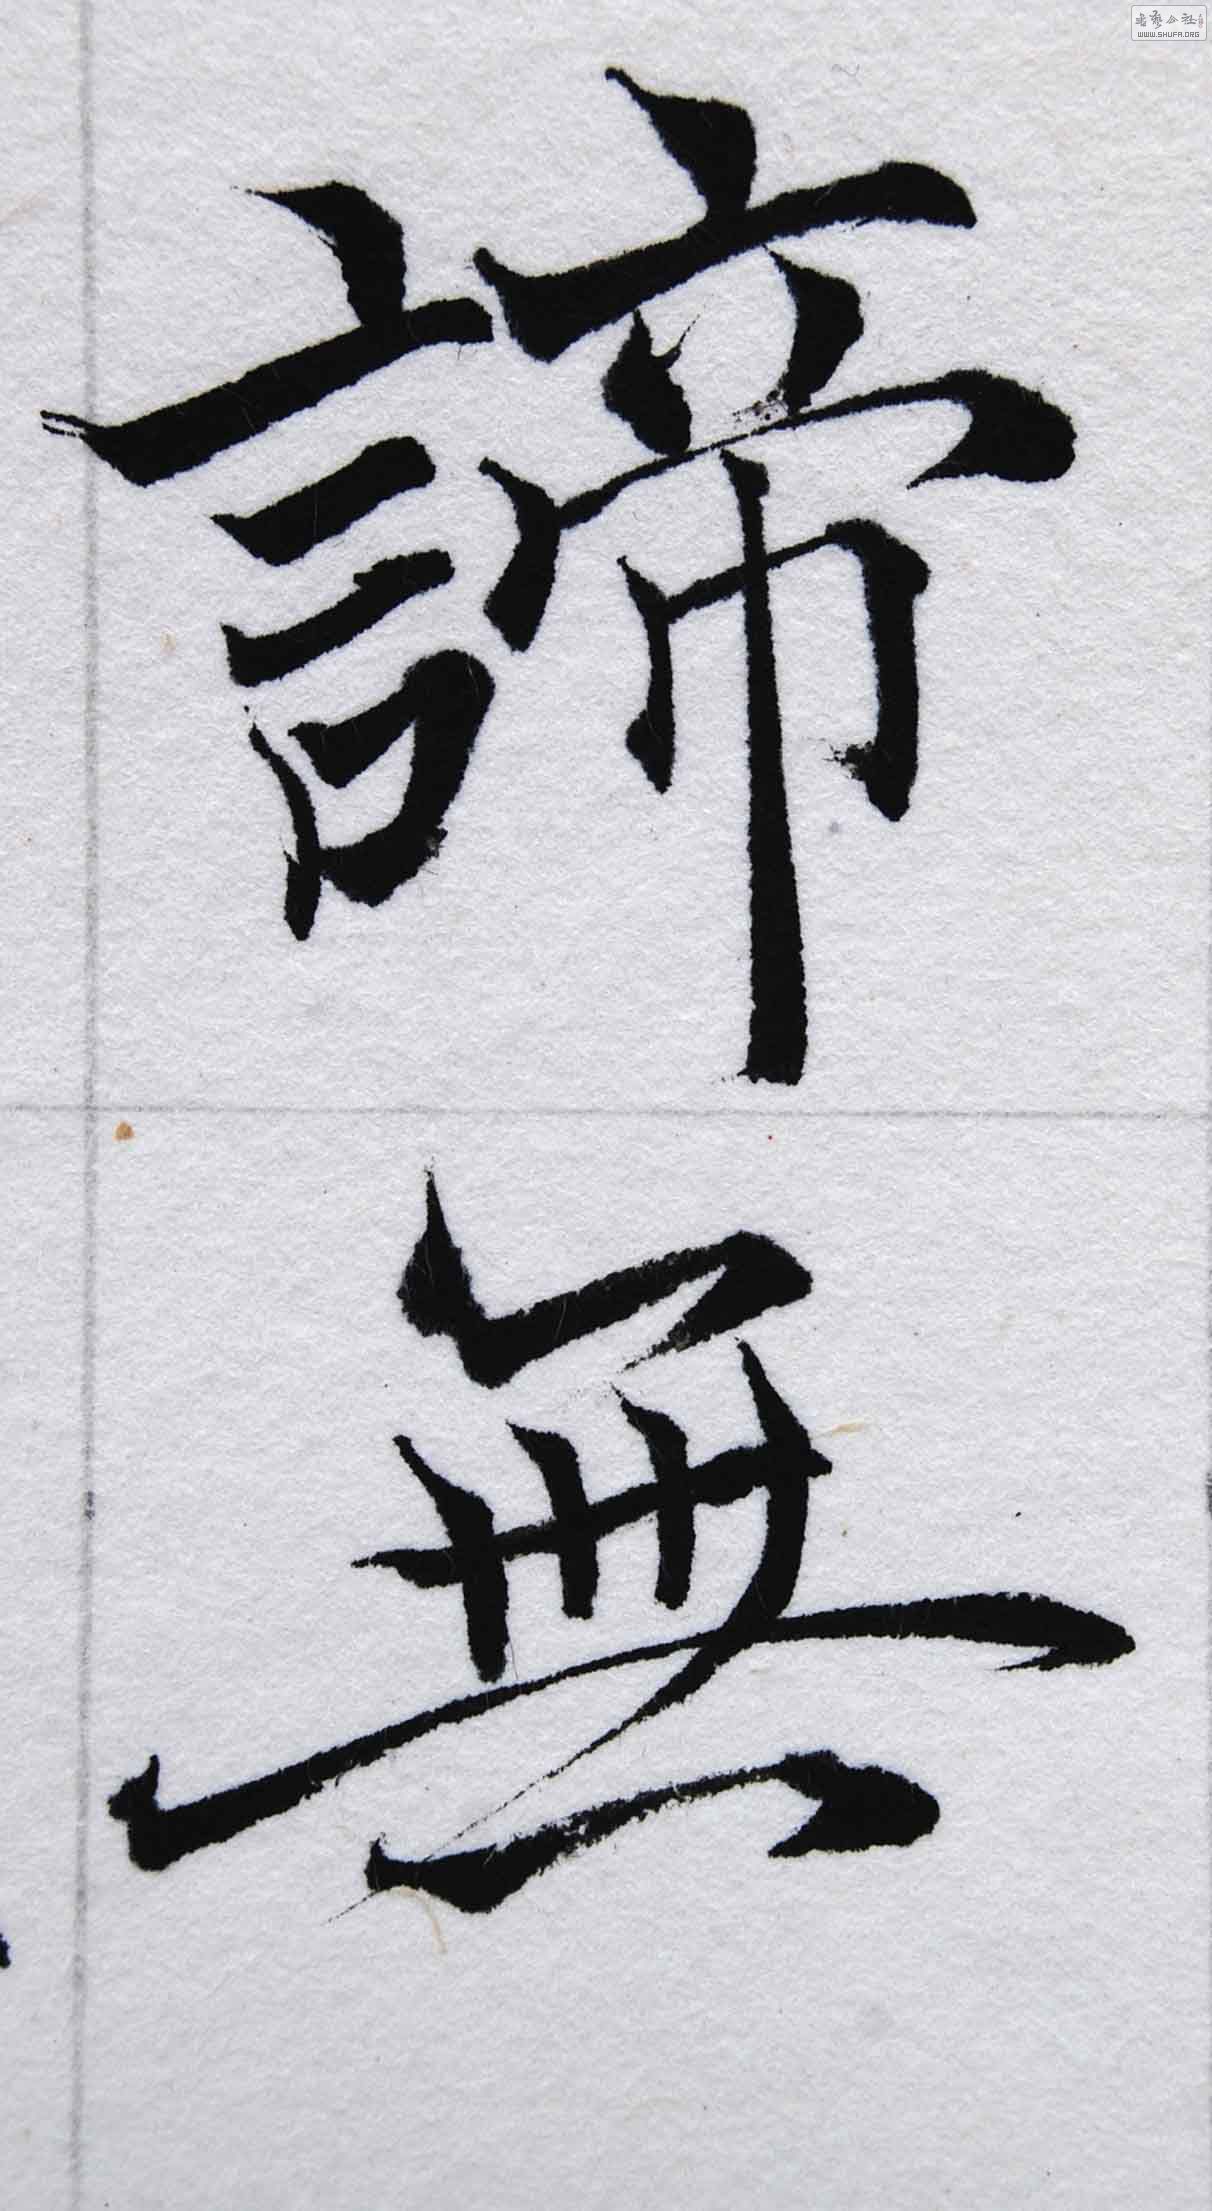 諦
無
书艺公社
WWW.SHUFA.ORG